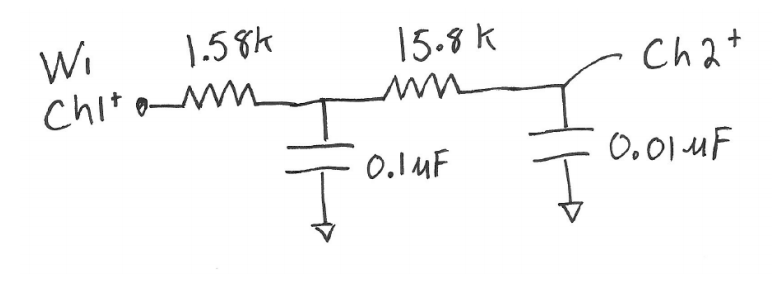 W1
Ch1+
1.58k
15.8k
Ch2+
0.1uF
0.01uF